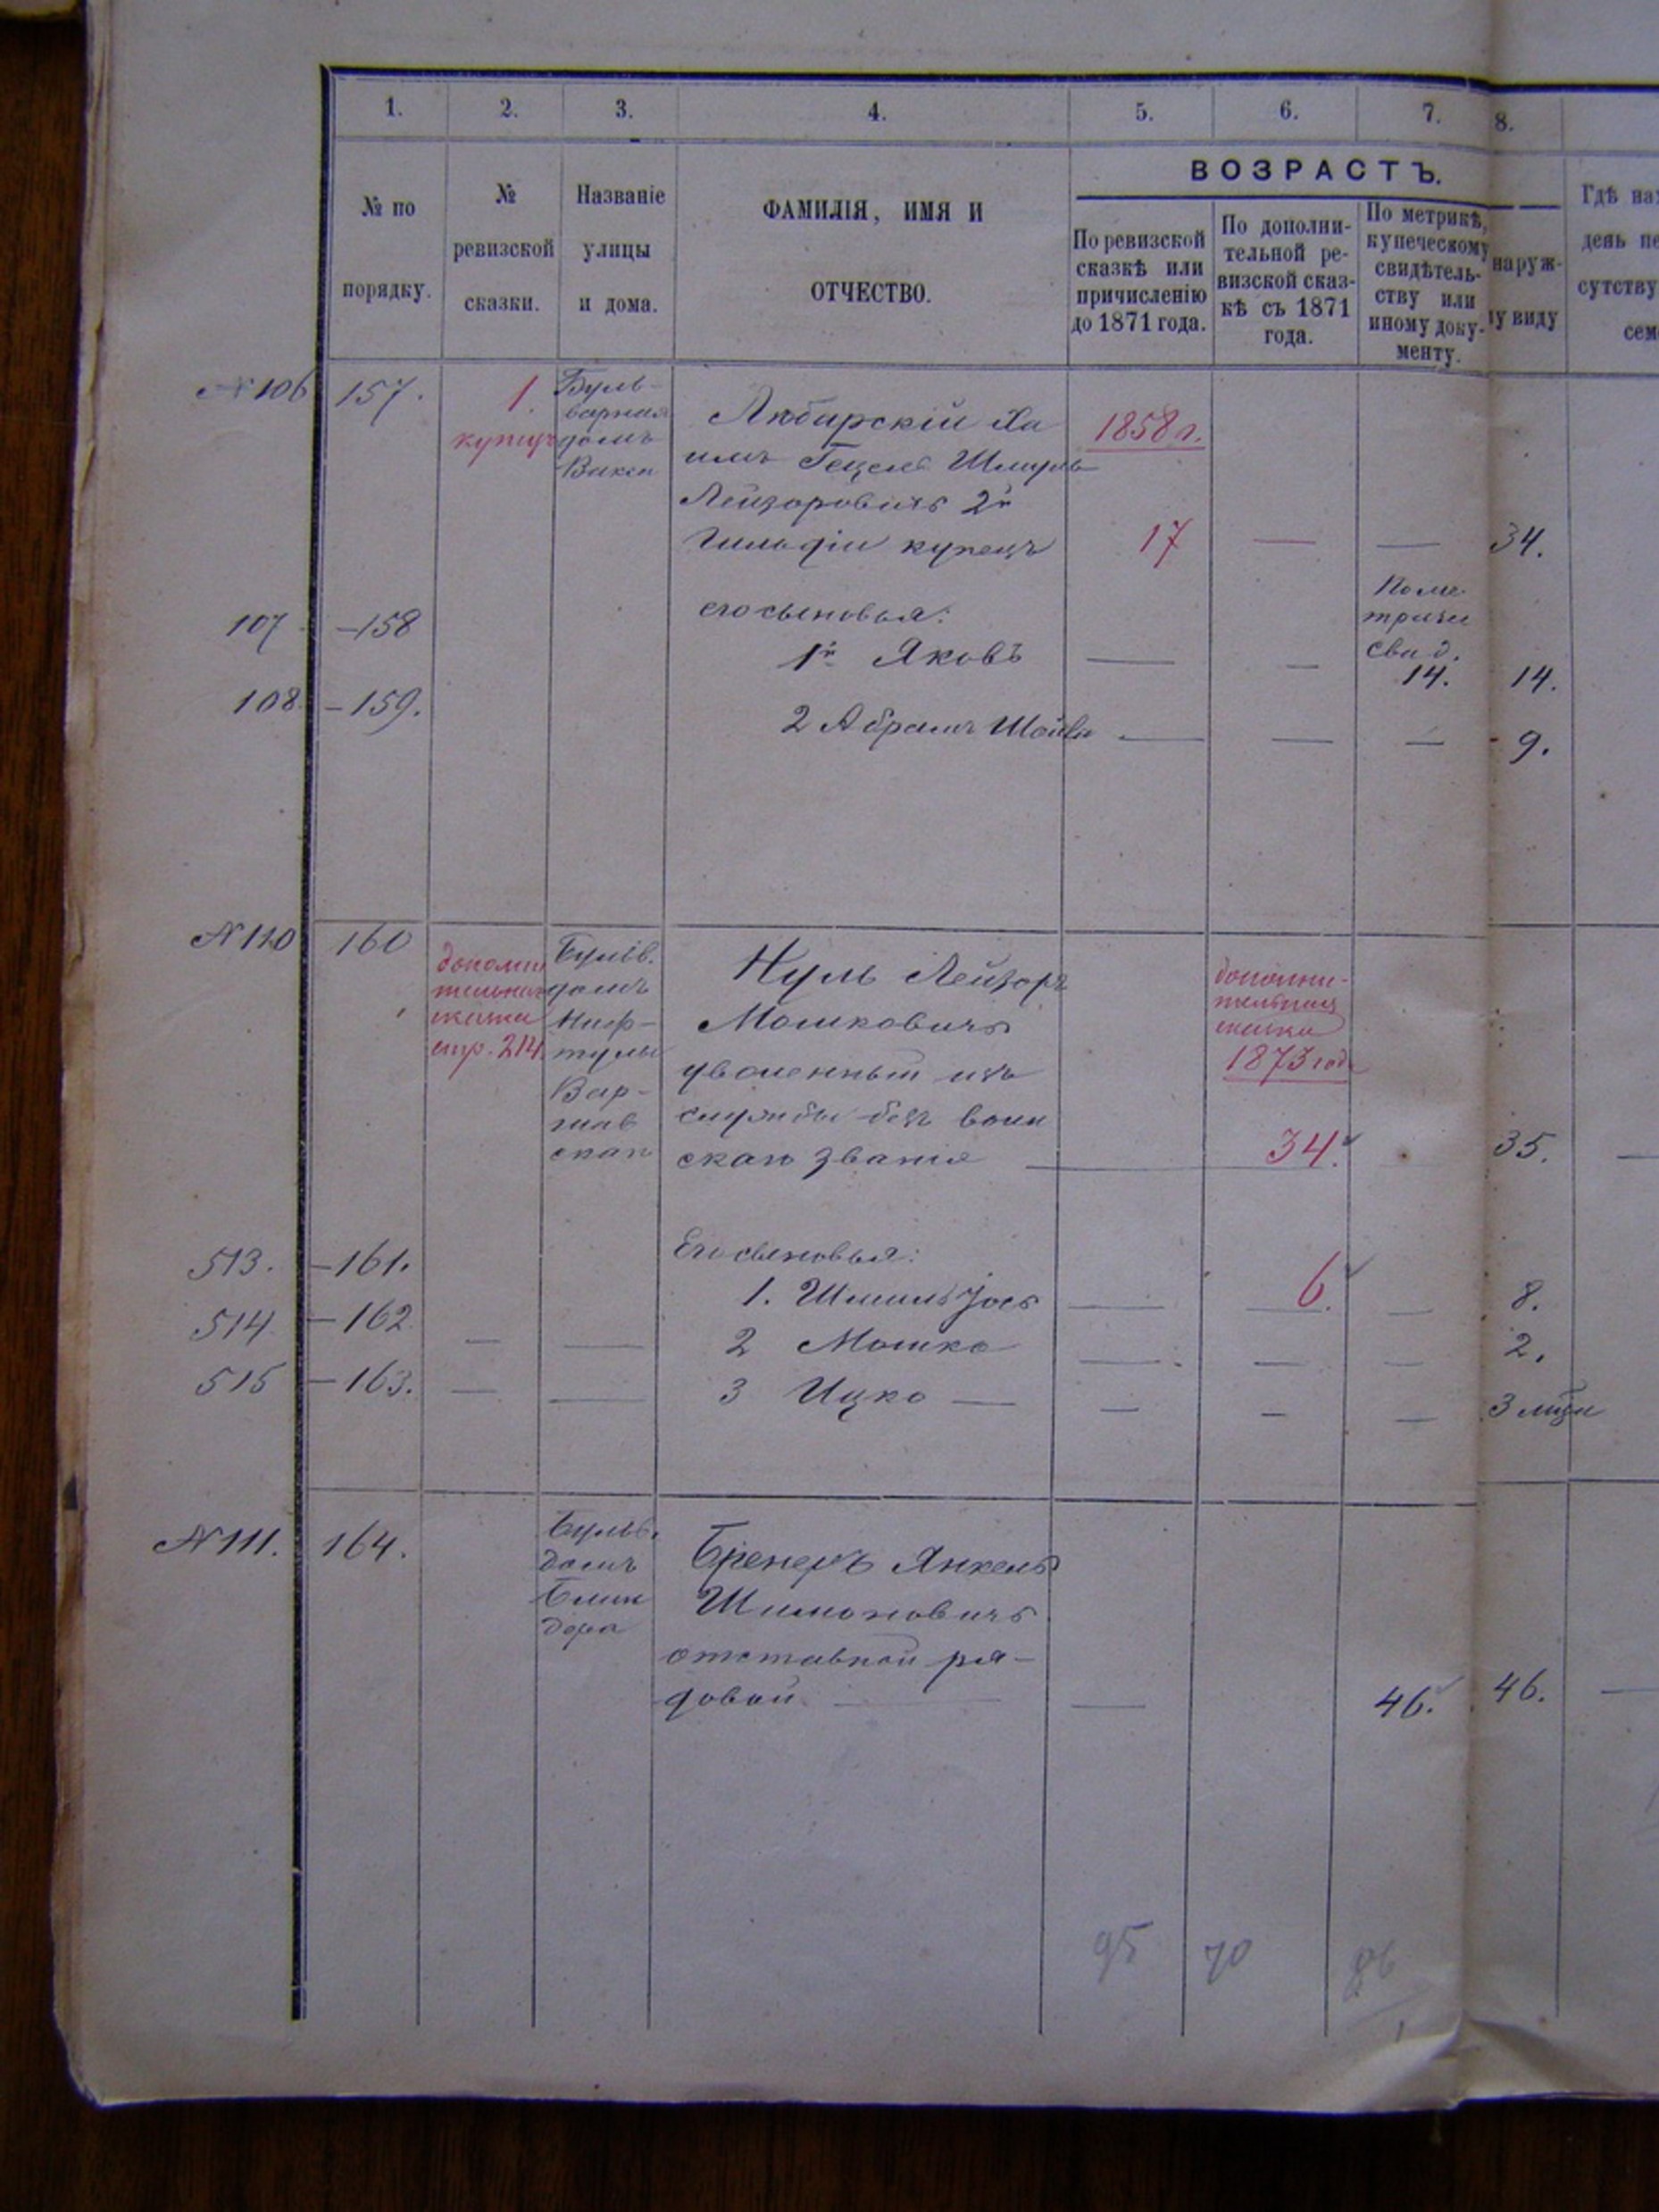 1. 2. 3. 4. 5. 6. 7. 8.
ВОЗРАСТЪ.
№ по
порядку.
№
ревизской
сказки.
Названіе
улицы
и дома.
ФАМИЛІЯ, ИМЯ И
ОТЧЕСТВО.
По ревизской
сказкѣ или
причисленію
до 1871 года.
По дополни-
тельной ре-
визской сказ-
кѣ съ 1871
года.
По метрикѣ,
купеческому
свидѣтель-
ству или
иному доку-
менту.
наруж-
у виду
Гдѣ на
день пе
сутству
сем
№ 106 157. 1.
купеч
Буль-
варная
домъ
Любарскій Ха
имъ Гецель Шмуль
Лейзоровичъ 2й
Гильдіи купецъ
1858 г.
17 — — 34.
его сыновья:
107 - 158
1й Яковъ — —
По ме-
тричес
свид.
14. 14.
108 - 159.
2 Абрамъ — — — 9.
№ 110 160
дополни
тельная
сказка
стр. 214
Бульв.
домъ
Ниф-
тулы
Вар-
шав
скаго
Нуль Лейзоръ
Мошковичъ
уволенный изъ
службы безъ воин
скаго званія
дополни-
тельная
сказка
1873 года
34. 35.
Его сыновья:
513. - 161.
1. Шмиль Јось — 6. — 8.
514 - 162 — —
2 Мошко — — — 2.
515 - 163. — —
3 Ицко — — — — 3 мѣся
№ 111. 164.
Бульв.
домъ
Блин
дера
Бренеръ Янкель
Шимоновичъ
отставной ря-
довой — — 46. 46.
95 70 86